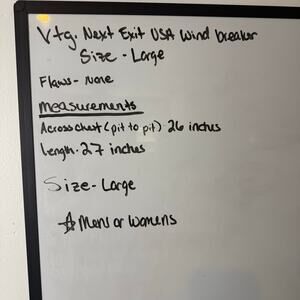 Vtg. Next Exit USA Wind breaker
Size - Large
Flaws - None
Measurements
Across chest (pit to pit) · 26 inches
Length · 27 inches
Size - Large
☆ Mens or Womens